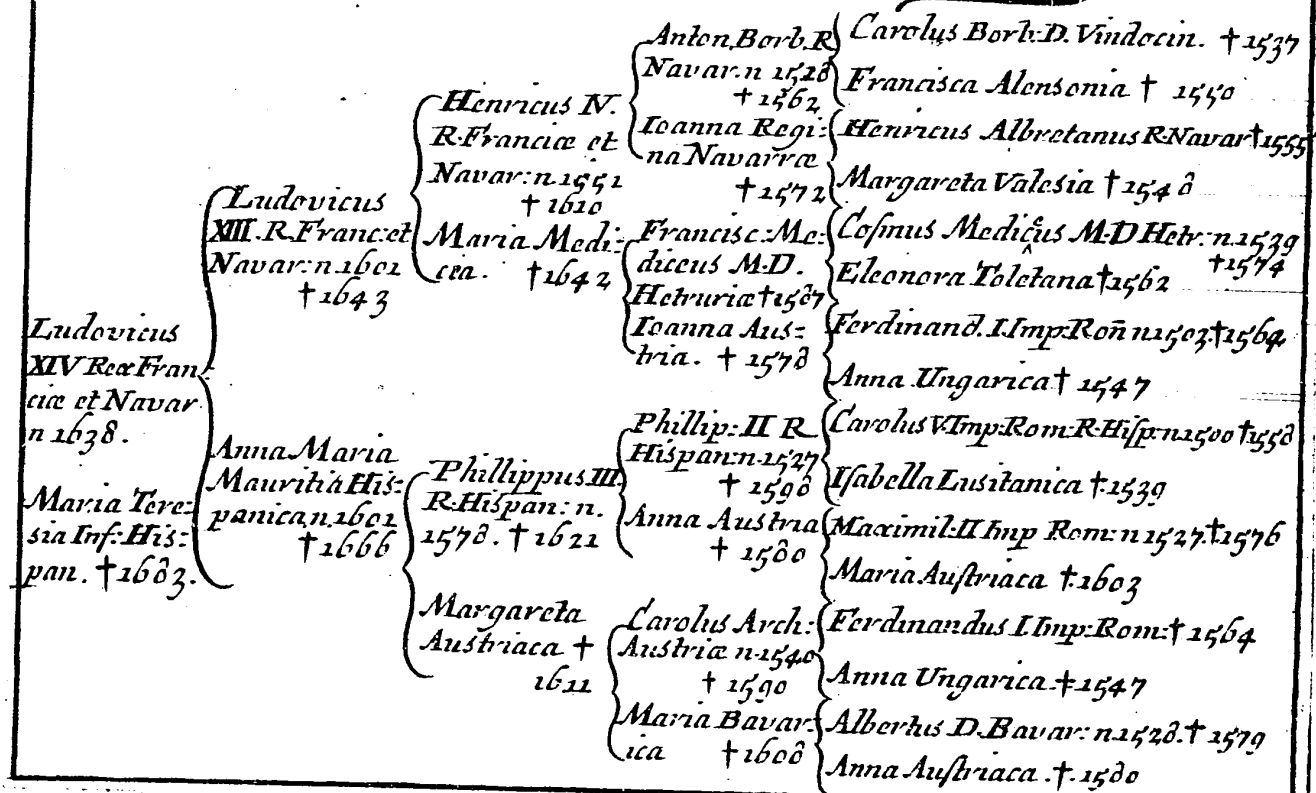 Ludovicus
XIV Rex Fran
ciæ et Navar
n 1638.
Maria Tere:
sia Inf: His:
pan. † 1683.
Ludovicus
XIII. R. Franc: et
Navar: n 1601
† 1643
Anna Maria
Mauritia His:
panica n 1601
† 1666
Henricus IV.
R. Franciæ et
Navar: n 1551
† 1610
Maria Medi:
cea. † 1642
Phillippus III.
R. Hispan: n.
1578. † 1621
Margareta
Austriaca †
1611
Anton. Borb. R
Navar. n 1518
† 1562
Ioanna Regi:
na Navarræ
† 1572
Francisc: Me:
diceus M.D.
Hetruriæ † 1587
Ioanna Aus:
tria. † 1578
Phillip: II R
Hispan: n 1527
† 1598
Anna Austria
† 1580
Carolus Arch:
Austriæ n 1540
† 1590
Maria Bavar:
ica † 1608
Carolus Borb: D. Vindocin. † 1537
Francisca Alensonia † 1550
Henricus Albretanus R. Navar † 1555
Margareta Valesia † 1548
Cosmus Medicus M.D Hetr: n. 1539
† 1574
Eleonora Toletana † 1562
Ferdinand. I. Imp: Rom̄ n 1503. † 1564
Anna Ungarica † 1547
Carolus V. Imp: Rom: R. Hisp: n 1500 † 1558
Isabella Lusitanica † 1539
Maximil: II Imp Rom: n 1527. † 1576
Maria Austriaca †. 1603
Ferdinandus I Imp: Rom: † 1564
Anna Ungarica † 1547
Albertus D. Bavar: n 1528. † 1579
Anna Austriaca. †. 1580